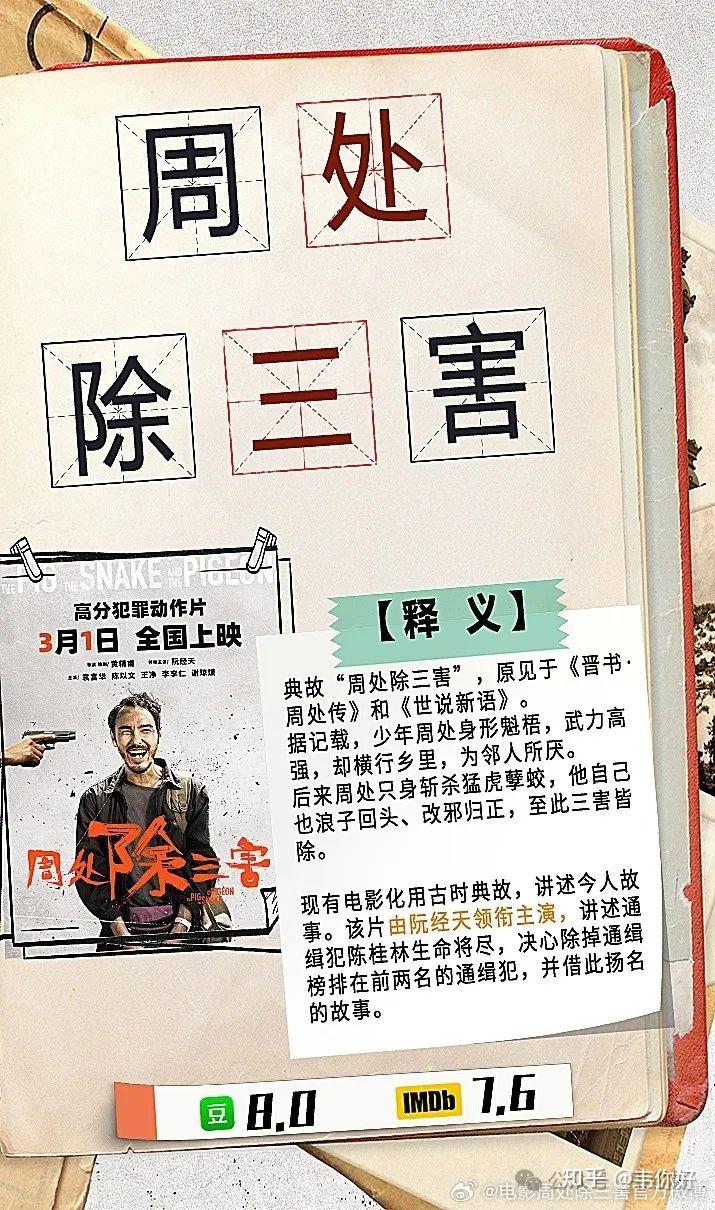 周处
除三害
THE PIG THE SNAKE AND THE PIGEON
高分犯罪动作片
3月1日 全国上映
黄精甫 阮经天
袁富华 陈以文 王净 李李仁 谢琼煖
周处除三害
【释 义】
典故“周处除三害”，原见于《晋书·
周处传》和《世说新语》。
据记载，少年周处身形魁梧，武力高
强，却横行乡里，为邻人所厌。
后来周处只身斩杀猛虎孽蛟，他自己
也浪子回头、改邪归正，至此三害皆
除。
现有电影化用古时典故，讲述今人故
事。该片由阮经天领衔主演，讲述通
缉犯陈桂林生命将尽，决心除掉通缉
榜排在前两名的通缉犯，并借此扬名
的故事。
豆 8.0 IMDb 7.6
知乎 @韦你好
@电影周处除三害官方微博